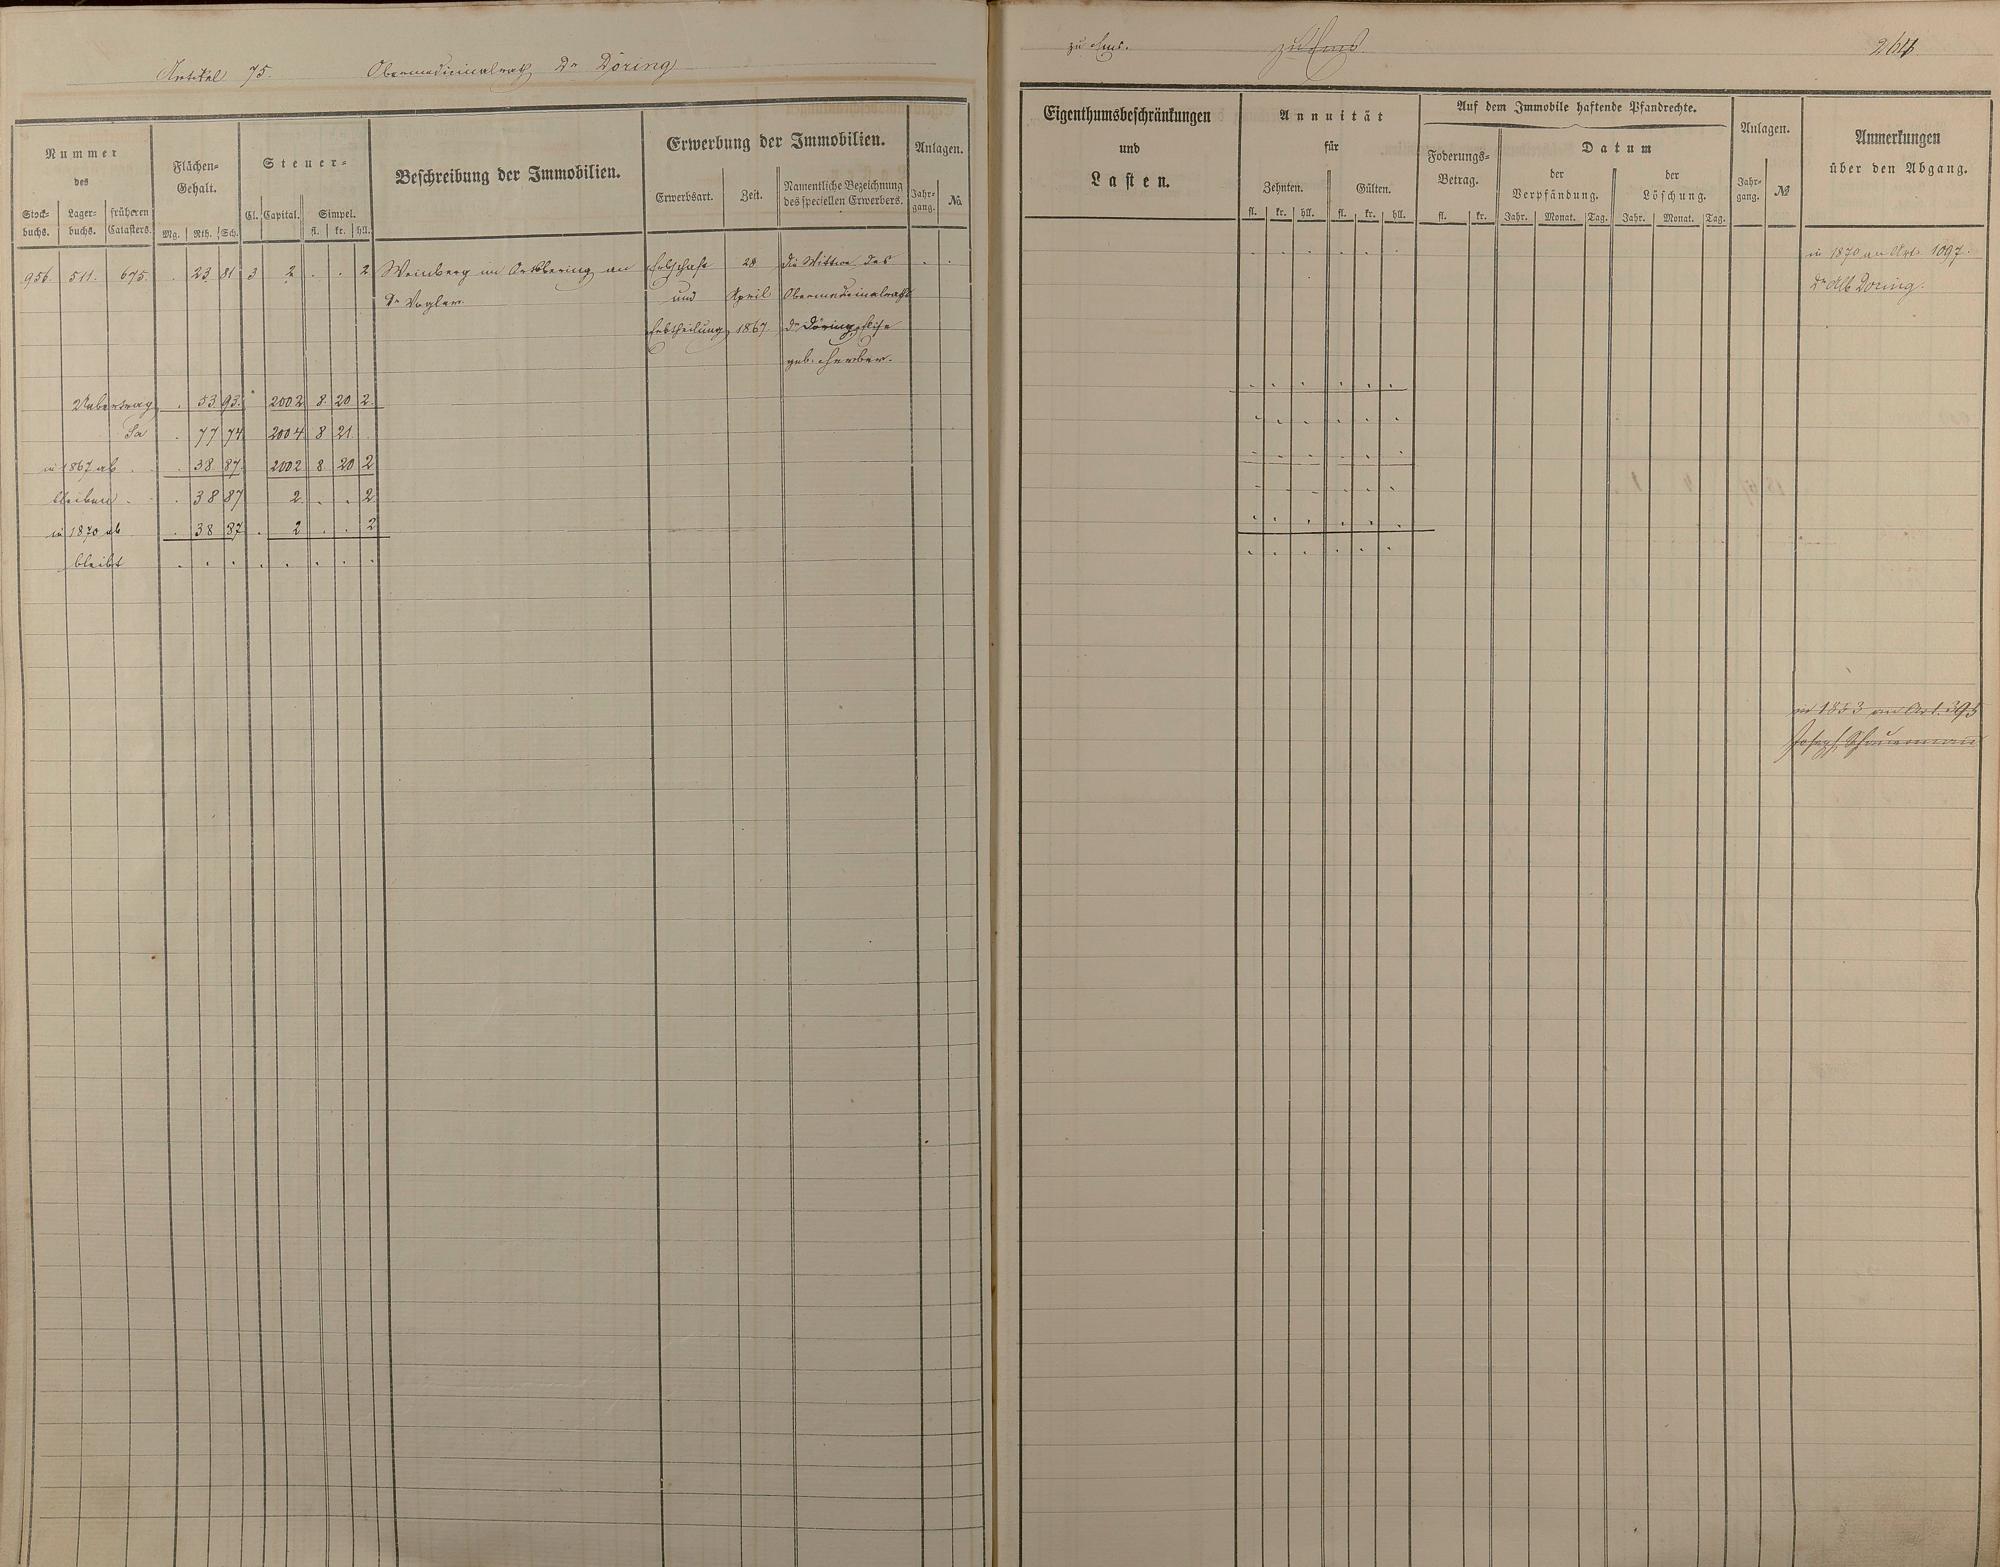 Artikel 75. Obermedicinalrath Dr Döring
Nummer
des
Stock-
buchs.
Lager-
buchs.
früheren
Catasters.
Flächen-
Gehalt.
Mg. Rth. Sch.
Steuer-
Cl. Capital. Simpel.
fl. kr. hll.
Beschreibung der Immobilien.
Erwerbung der Immobilien.
Erwerbsart. Zeit.
Namentliche Bezeichnung
des speciellen Erwerbers.
Anlagen.
Jahr-
gang.
No.
956. 511. 675. . 23 81 3 2 . . 2 Weinberg im Ortsbering an Erbschaft 28 die Wittwe des . .
Dr Vogler. und April Obermedicinalraths
Erbtheilung 1867 Dr Döring, Elise
geb. Herber.
Uebertrag . 53 93. 2002 8. 20 2.
Sa . 77 74 2004 8 21 .
in 1867 ab . . 38 87. 2002 8 20 2
bleiben . . 38 87 2 . . 2
in 1870 ab . 38 87 . 2 . . 2
bleibt . . . . . . . .
zu Ems. zu Ems 264
Eigenthumsbeschränkungen
und
Lasten.
Annuität
für
Zehnten. Gülten.
fl. kr. hll. fl. kr. hll.
Auf dem Immobile haftende Pfandrechte.
Foderungs-
Betrag.
fl. kr.
Datum
der
Verpfändung.
Jahr. Monat. Tag.
der
Löschung.
Jahr. Monat. Tag.
Anlagen.
Jahr-
gang.
№
Anmerkungen
über den Abgang.
in 1870 an Art. 1097.
Dr Alb Döring.
in 1853 an Art. 395
Joseph